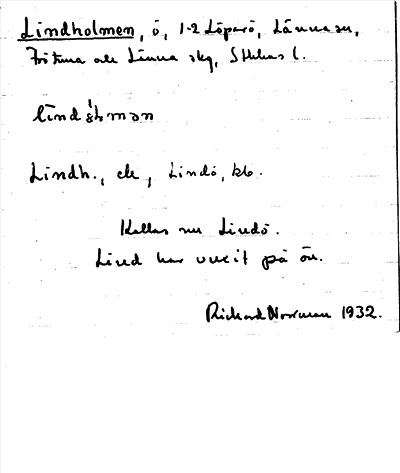 Lindholmen, ö, 1-2 Löparö, Länna sn,
Frötuna och Länna skg, Sthlms l.
Lindh., ek, Lindö, kb.
Kallas nu Lindö.
Lind har vuxit på ön.
Rickard Norrman 1932.